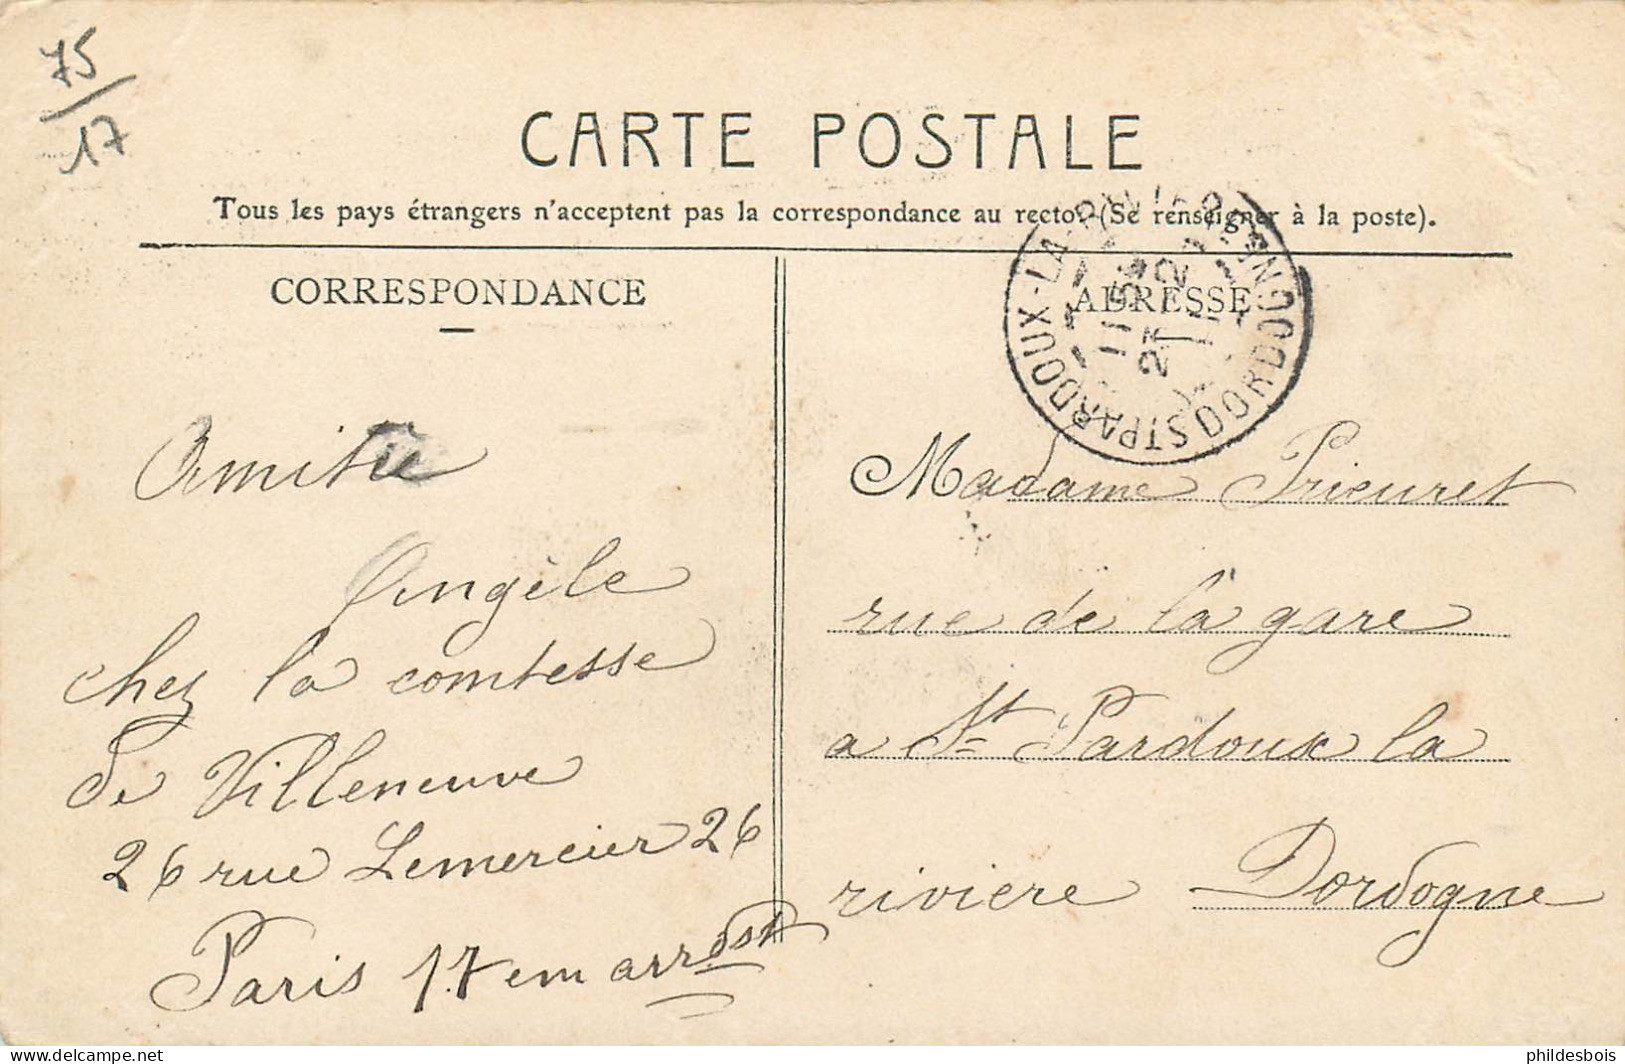 75
17
CARTE POSTALE
Tous les pays étrangers n'acceptent pas la correspondance au recto. (Se renseigner à la poste).
CORRESPONDANCE
ADRESSE
ST PARDOUX-LA-RIVIERE
DORDOGNE
11
27
Amitié
Angèle
chez la comtesse
De Villeneuve
26 rue Lemercier 26
Paris 17em arrdst
Madame Prieuret
rue de la gare
a St Pardoux la
riviere Dordogne
phildesbois